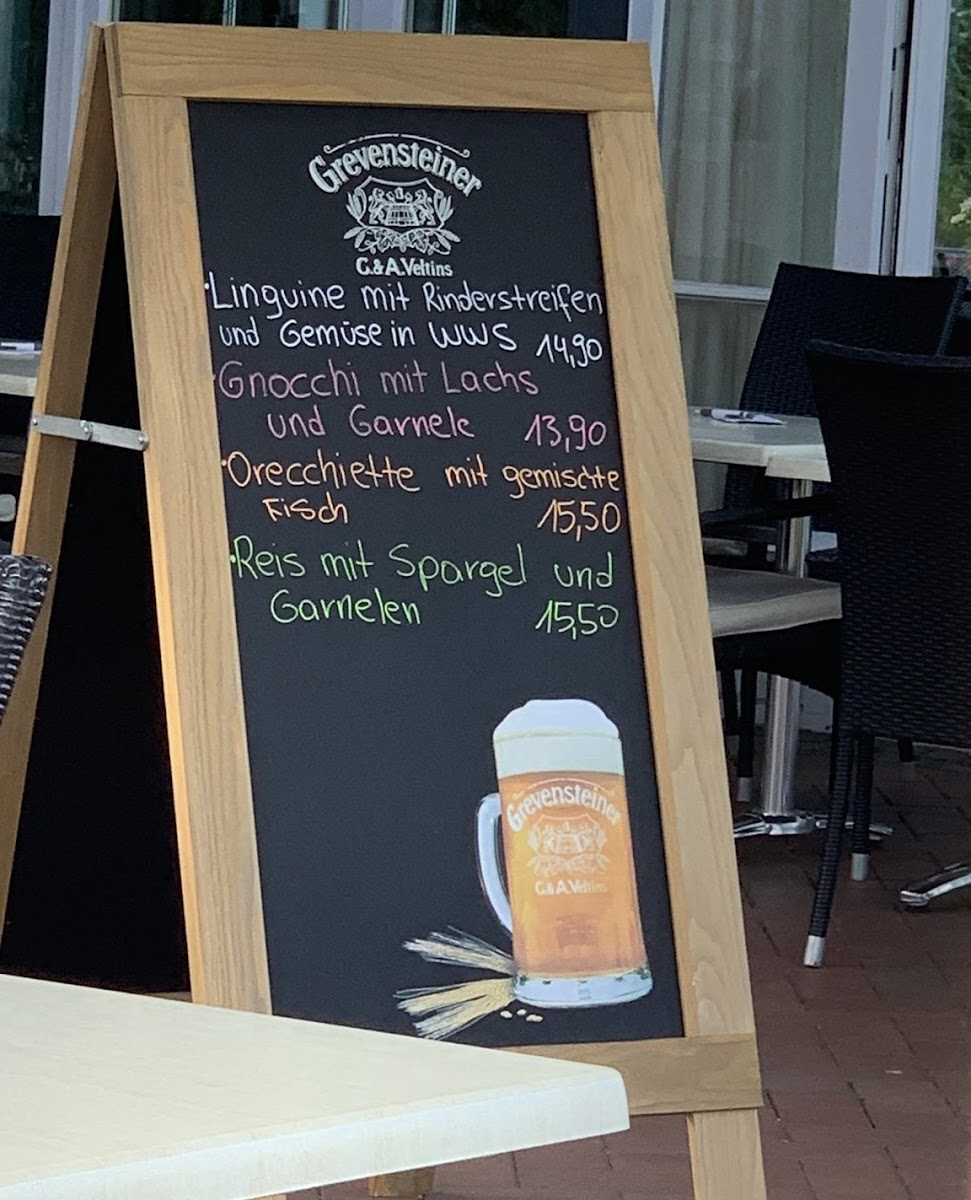 Grevensteiner
C.&A.Veltins
·Linguine mit Rinderstreifen
und Gemüse in WWS 14,90
·Gnocchi mit Lachs
und Garnele 13,90
·Orecchiette mit gemischte
Fisch 15,50
·Reis mit Spargel und
Garnelen 15,50
Grevensteiner
C.&A.Veltins